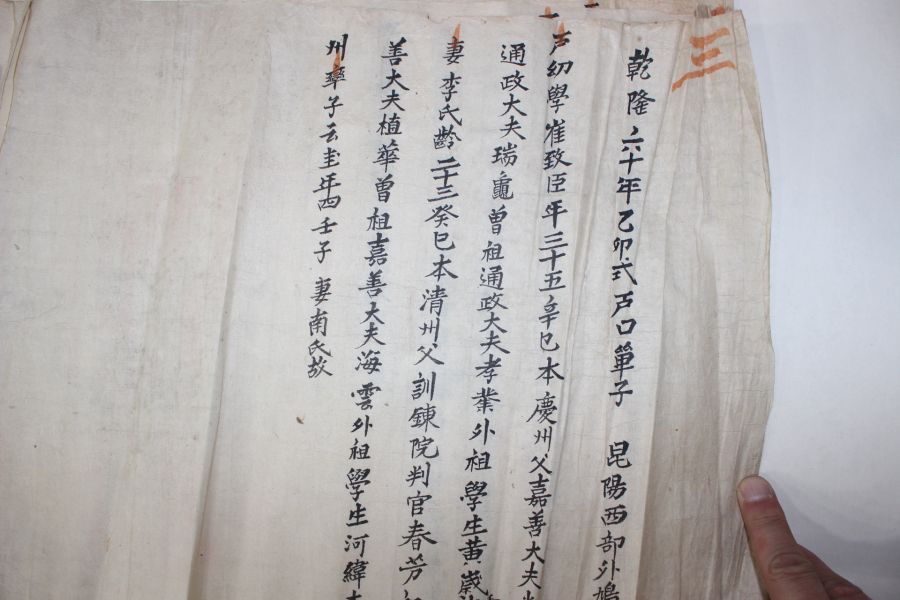 三
乾隆六十年乙卯式戶口單子 昆陽西部外鳩
戶幼學崔致臣年三十五辛巳本慶州父嘉善大夫
通政大夫瑞龜曾祖通政大夫孝業外祖學生黃歲
妻李氏齡二十三癸巳本清州父訓鍊院判官春芳
善大夫植華曾祖嘉善大夫海雲外祖學生河緯
州率子云圭年四壬子 妻南氏故